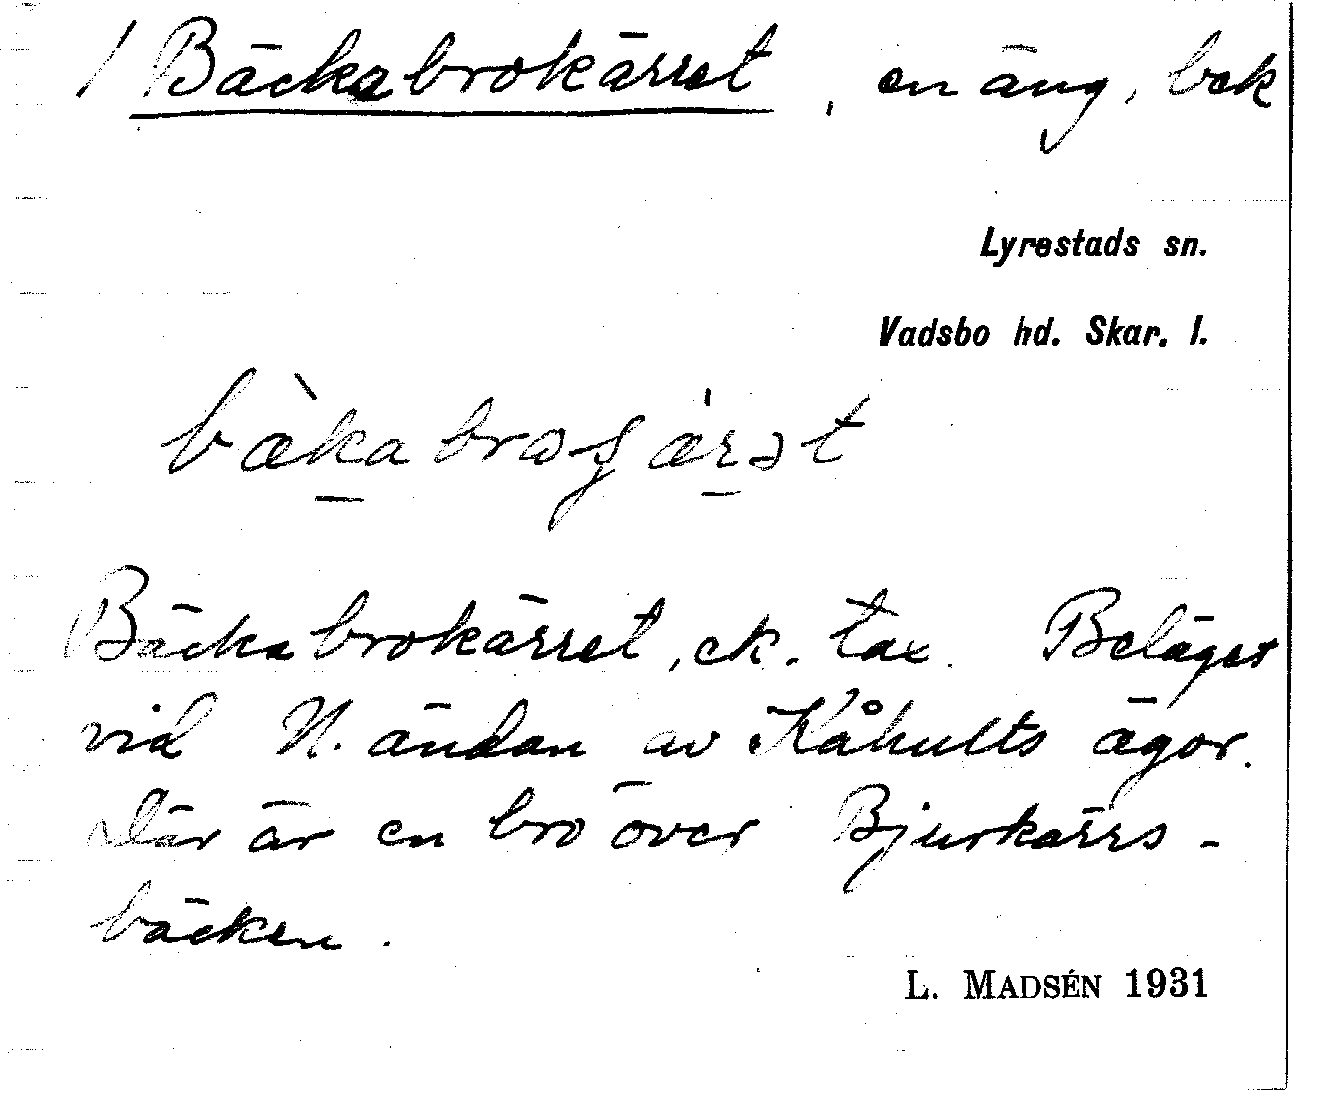 / Bäckabrokärret, en äng, bek
Lyrestads sn.
Vadsbo hd. Skar. l.
bæ̀kabroʃæ̍rət
Bäckabrokärret, ek. tax. Beläget
vid N. ändan av Kåhults ägor.
Där är en bro över Bjurkärrs-
bäcken.
L. MADSÉN 1931